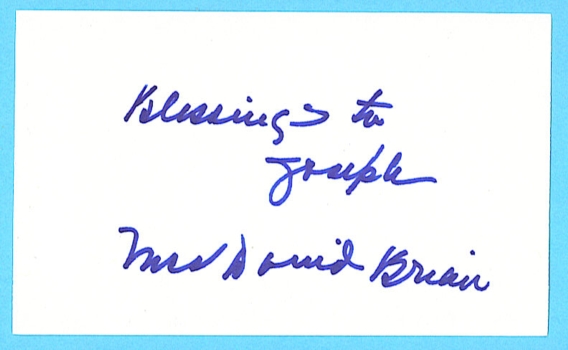 Blessings to
Joseph
Mrs David Brian